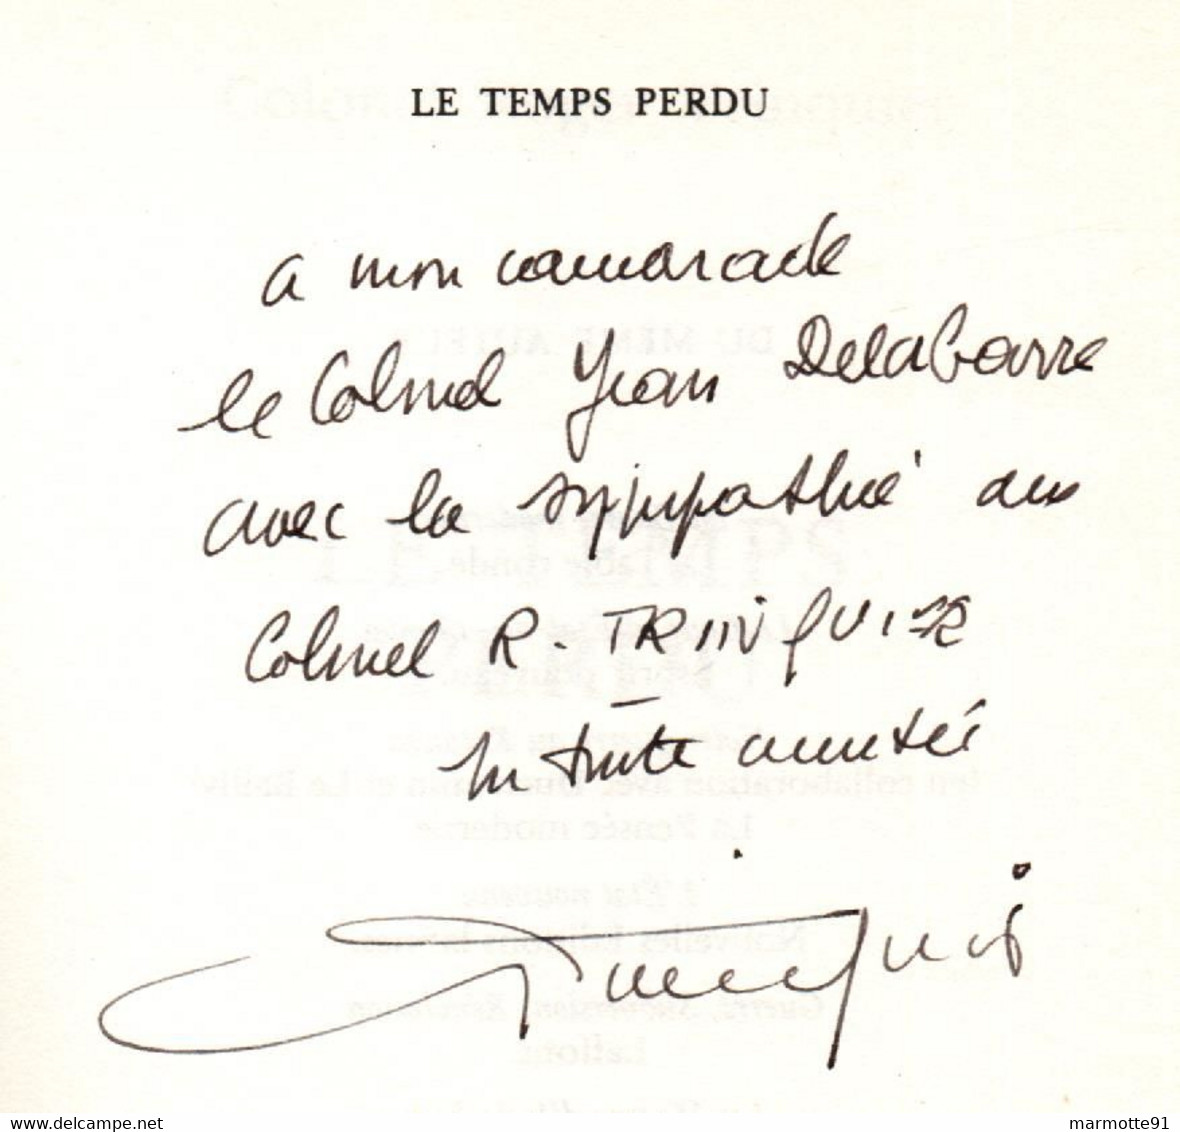 LE TEMPS PERDU
a mon camarade
le Colonel Jean Delabarre
avec la sympathie du
Colonel R. TRINQUIER
En toute amitié
Trinquier
marmotte91